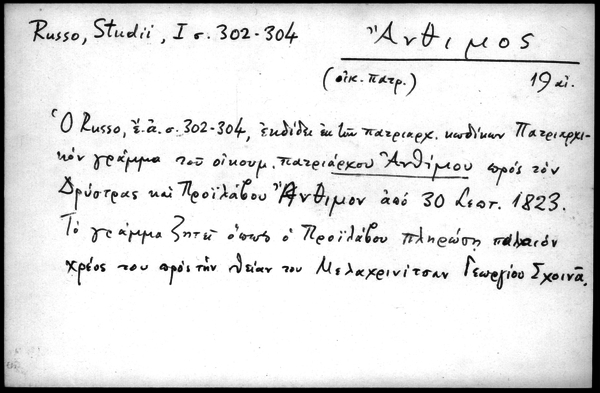 Russo, Studii, I σ. 302-304
Ἄνθιμος
(οἰκ. πατρ.) 19 αἰ.
Ὁ Russo, ἔ.ἀ. σ. 302-304, ἐκδίδει ἐκ τῶν πατριαρχ. κωδίκων Πατριαρχι-
κόν γράμμα τοῦ οἰκουμ. πατριάρχου Ἀνθίμου πρός τόν
Δρύστρας καί Προϊλάβου Ἄνθιμον ἀπό 30 Σεπτ. 1823.
Τό γράμμα ζητεῖ ὅπως ὁ Προϊλάβου πληρώσῃ παλαιόν
χρέος του πρός τήν θείαν του Μελαχρινίτσαν Γεωργίου Σχοινᾶ.